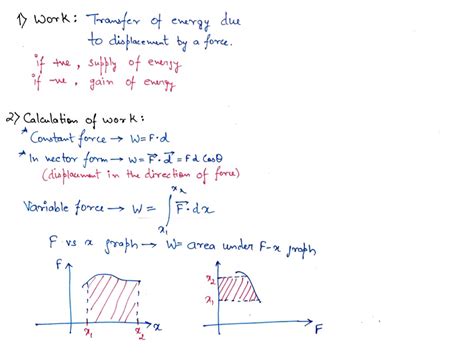 1) Work: Transfer of energy due
to displacement by a force.
if +ve, supply of energy
if -ve, gain of energy
2) Calculation of work:
* Constant force → W=F·d
* In vector form → W = F⃗·d⃗ = Fd Cosθ
(displacement in the direction of force)
Variable force → W = ∫ₓ₁ˣ² F⃗·dx
F vs x graph → W= area under F-x graph
F
x₁
x₂
x
x₂
x₁
F